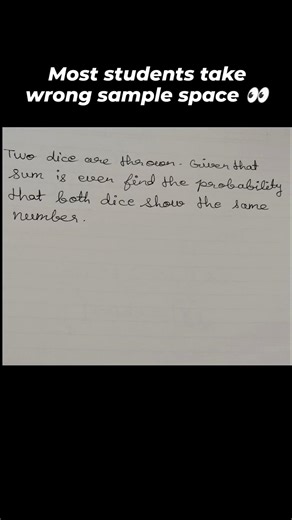 Most students take
wrong sample space 👀
Two dice are thrown. Given that
sum is even find the probability
that both dice show the same
number.